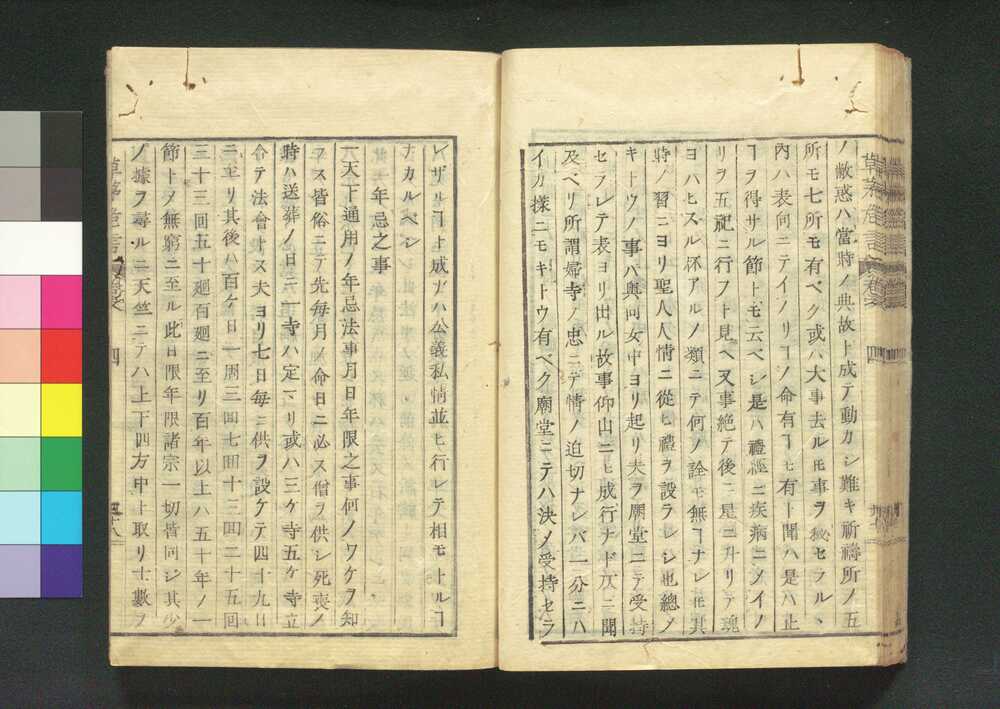 ノ蔽惑ハ當時ノ典故ト成テ動カシ難キ祈禱所ノ五
所モ七所モ有ベク或ハ大事去ル𪜈事ヲ秘セラルヽ
内ハ表向ニテイノリヿノ命有ヿモ有ト聞ハ是ハ止
ヿヲ得サル節トモ云ベシ是ハ禮經ニ疾病ニメイノ
リヲ五祀ニ行フト見ヘ又事絶テ後ニ星ニ升リテ魂
ヨハヒスル抔アルノ類ニテ何ノ詮モ無ヿナレ𪜈其
時ノ習ニヨリ聖人人情ニ從ヒ禮ヲ設ラレシ也總メ
キトウノ事ハ奥向女中ヨリ起リ夫ヲ廟堂ニテ受持
セラレテ表ヨリ出ル故事仰山ニモ成行ナド仄ニ聞
及ベリ所謂婦寺ノ忠ニテ情ノ迫切ナレバ一分ニハ
イカ樣ニモキトウ有ベク廟堂ニテハ決メ受持セラ
レザルヿト成ナハ公義私情並ヒ行レテ相モトルヿ
ナカルベシ
年忌之事
一天下通用ノ年忌法事月日年限之事何ノワケヲ知
ラス皆俗ニテ先毎月ノ命日ニ必ス僧ヲ供シ死喪ノ
時ハ送葬ノ日ニ一寺ハ定マリ或ハ三ケ寺五ケ寺立
合テ法會ナス夫ヨリ七日毎ニ供ヲ設ケテ四十九日
ニ至リ其後ハ百ケ日一周三回七回十三回二十五回
三十三回五十廻百廻ニ至リ百年以上ハ五十年ノ一
節トメ無窮ニ至ル此日限年限諸宗一切皆同シ其少
ノ據ヲ尋ルニ天竺ニテハ上下四方中ト取リ七數ヲ
草茅危言 卷之四